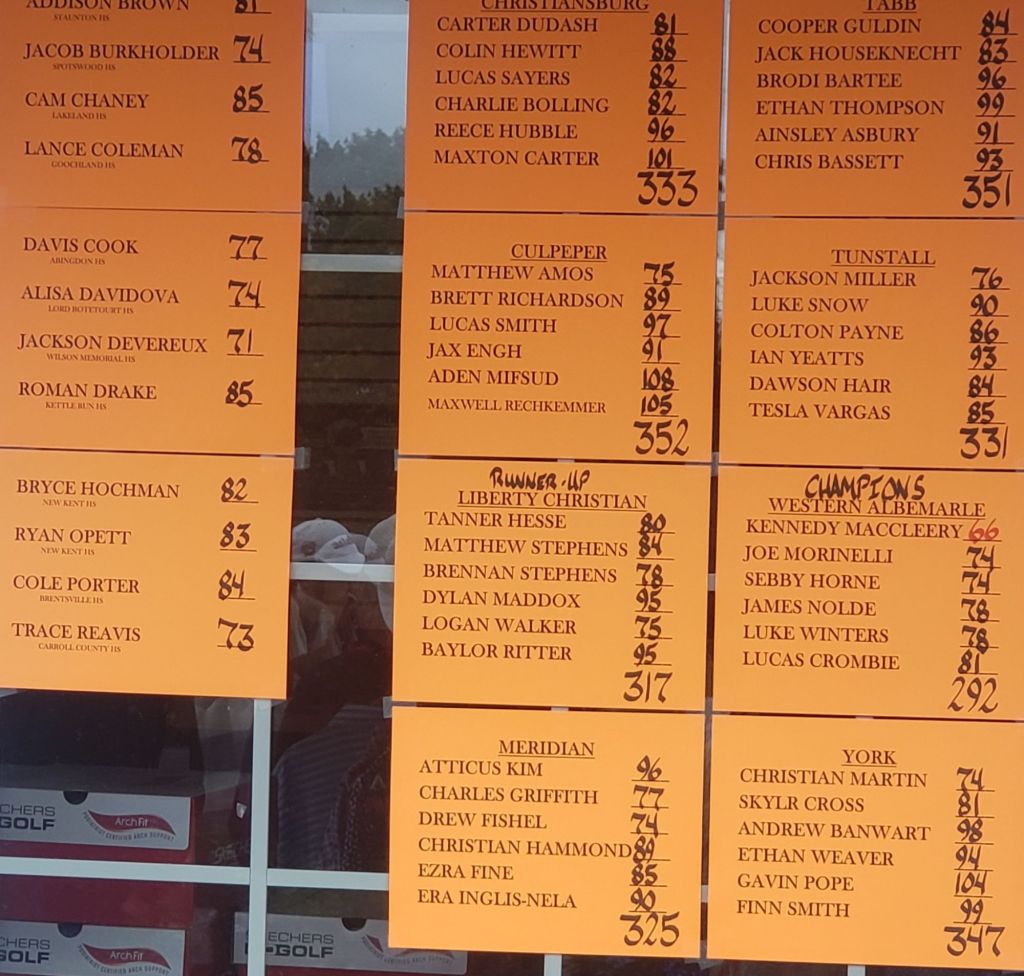 ADDISON BROWN 81
STAUNTON HS
JACOB BURKHOLDER 74
SPOTSWOOD HS
CAM CHANEY 85
LAKELAND HS
LANCE COLEMAN 78
GOOCHLAND HS
DAVIS COOK 77
ABINGDON HS
ALISA DAVIDOVA 74
LORD BOTETOURT HS
JACKSON DEVEREUX 71
WILSON MEMORIAL HS
ROMAN DRAKE 85
KETTLE RUN HS
BRYCE HOCHMAN 82
NEW KENT HS
RYAN OPETT 83
NEW KENT HS
COLE PORTER 84
BRENTSVILLE HS
TRACE REAVIS 73
CARROLL COUNTY HS
CHRISTIANSBURG
CARTER DUDASH 81
COLIN HEWITT 88
LUCAS SAYERS 82
CHARLIE BOLLING 82
REECE HUBBLE 96
MAXTON CARTER 101
333
CULPEPER
MATTHEW AMOS 75
BRETT RICHARDSON 89
LUCAS SMITH 97
JAX ENGH 91
ADEN MIFSUD 108
MAXWELL RECHKEMMER 105
352
RUNNER-UP
LIBERTY CHRISTIAN
TANNER HESSE 80
MATTHEW STEPHENS 84
BRENNAN STEPHENS 78
DYLAN MADDOX 95
LOGAN WALKER 75
BAYLOR RITTER 95
317
MERIDIAN
ATTICUS KIM 96
CHARLES GRIFFITH 77
DREW FISHEL 74
CHRISTIAN HAMMOND 89
EZRA FINE 85
ERA INGLIS-NELA 90
325
TABB
COOPER GULDIN 84
JACK HOUSEKNECHT 83
BRODI BARTEE 96
ETHAN THOMPSON 99
AINSLEY ASBURY 91
CHRIS BASSETT 93
351
TUNSTALL
JACKSON MILLER 76
LUKE SNOW 90
COLTON PAYNE 86
IAN YEATTS 93
DAWSON HAIR 84
TESLA VARGAS 85
331
CHAMPIONS
WESTERN ALBEMARLE
KENNEDY MACCLEERY 66
JOE MORINELLI 74
SEBBY HORNE 74
JAMES NOLDE 78
LUKE WINTERS 78
LUCAS CROMBIE 81
292
YORK
CHRISTIAN MARTIN 74
SKYLR CROSS 81
ANDREW BANWART 98
ETHAN WEAVER 94
GAVIN POPE 104
FINN SMITH 99
347
CHERS
GOLF
ArchFit
CERTIFIED ARCH SUPPORT
CHERS
GOLF
ArchFit
CERTIFIED ARCH SUPPORT
ECHERS
GOLF